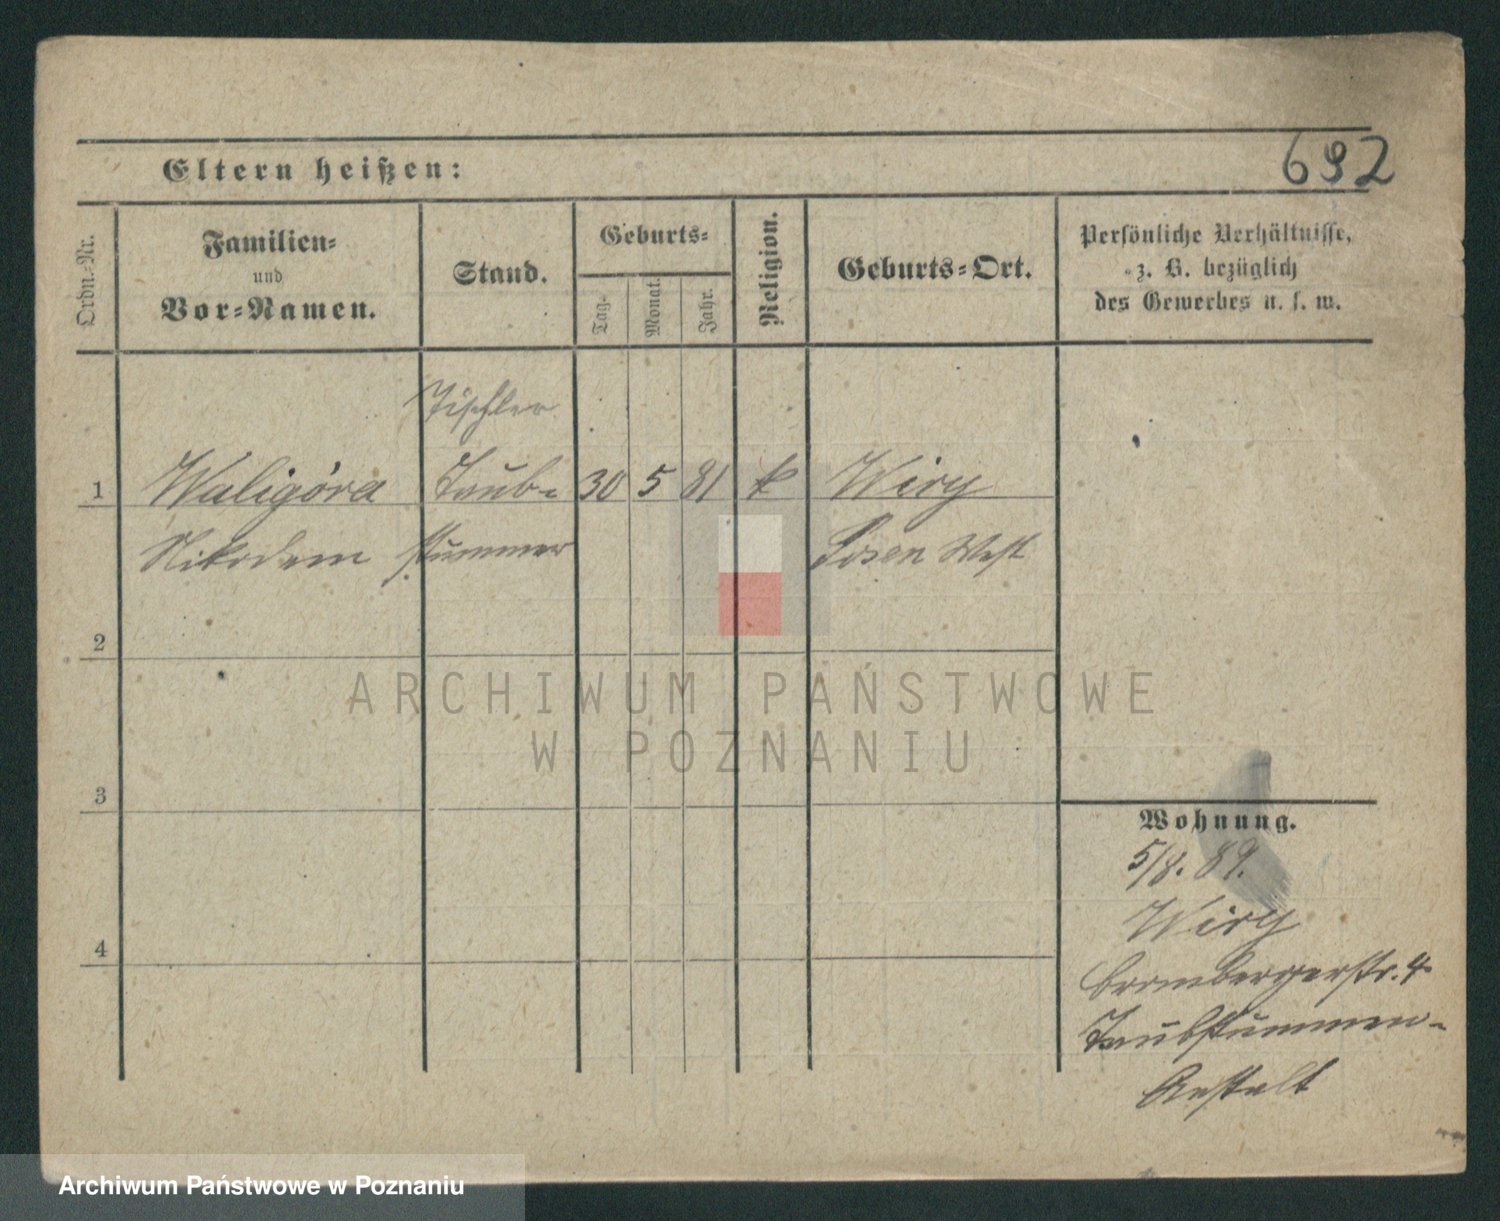 Eltern heißen:
692
Ordn.-Nr.
Familien-
und
Vor-Namen.
Stand.
Geburts-
Tag-
Monat.
Jahr.
Religion.
Geburts-Ort.
Persönliche Verhältnisse,
z. B. bezüglich
des Gewerbes u. s. w.
Tischler
1 Waligóra Taub- 30 5 81 k Wiry
Nikodem stummer Posen West
2
ARCHIWUM PAŃSTWOWE
W POZNANIU
3
Wohnung.
5/8. 89.
Wiry
4
Brombergerstr. 4
Taubstummen-
Anstalt
Archiwum Państwowe w Poznaniu